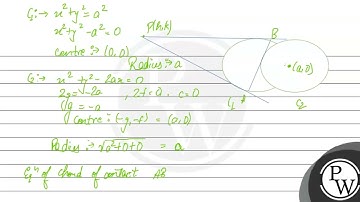 C₁:→ x² + y² = a²
x² + y² - a² = 0
centre :→ (0, 0)
Radius :→ a
C₂:→ x² + y² - 2ax = 0
2g = -2a , 2f = 0 , c = 0
g = -a
centre : (-g, -f) = (a, 0)
Radius :→ √a²+0+0 = a
Eqⁿ of chord of contact AB
P(h,k)
B
(a, 0)
C₁
A
C₂
PW